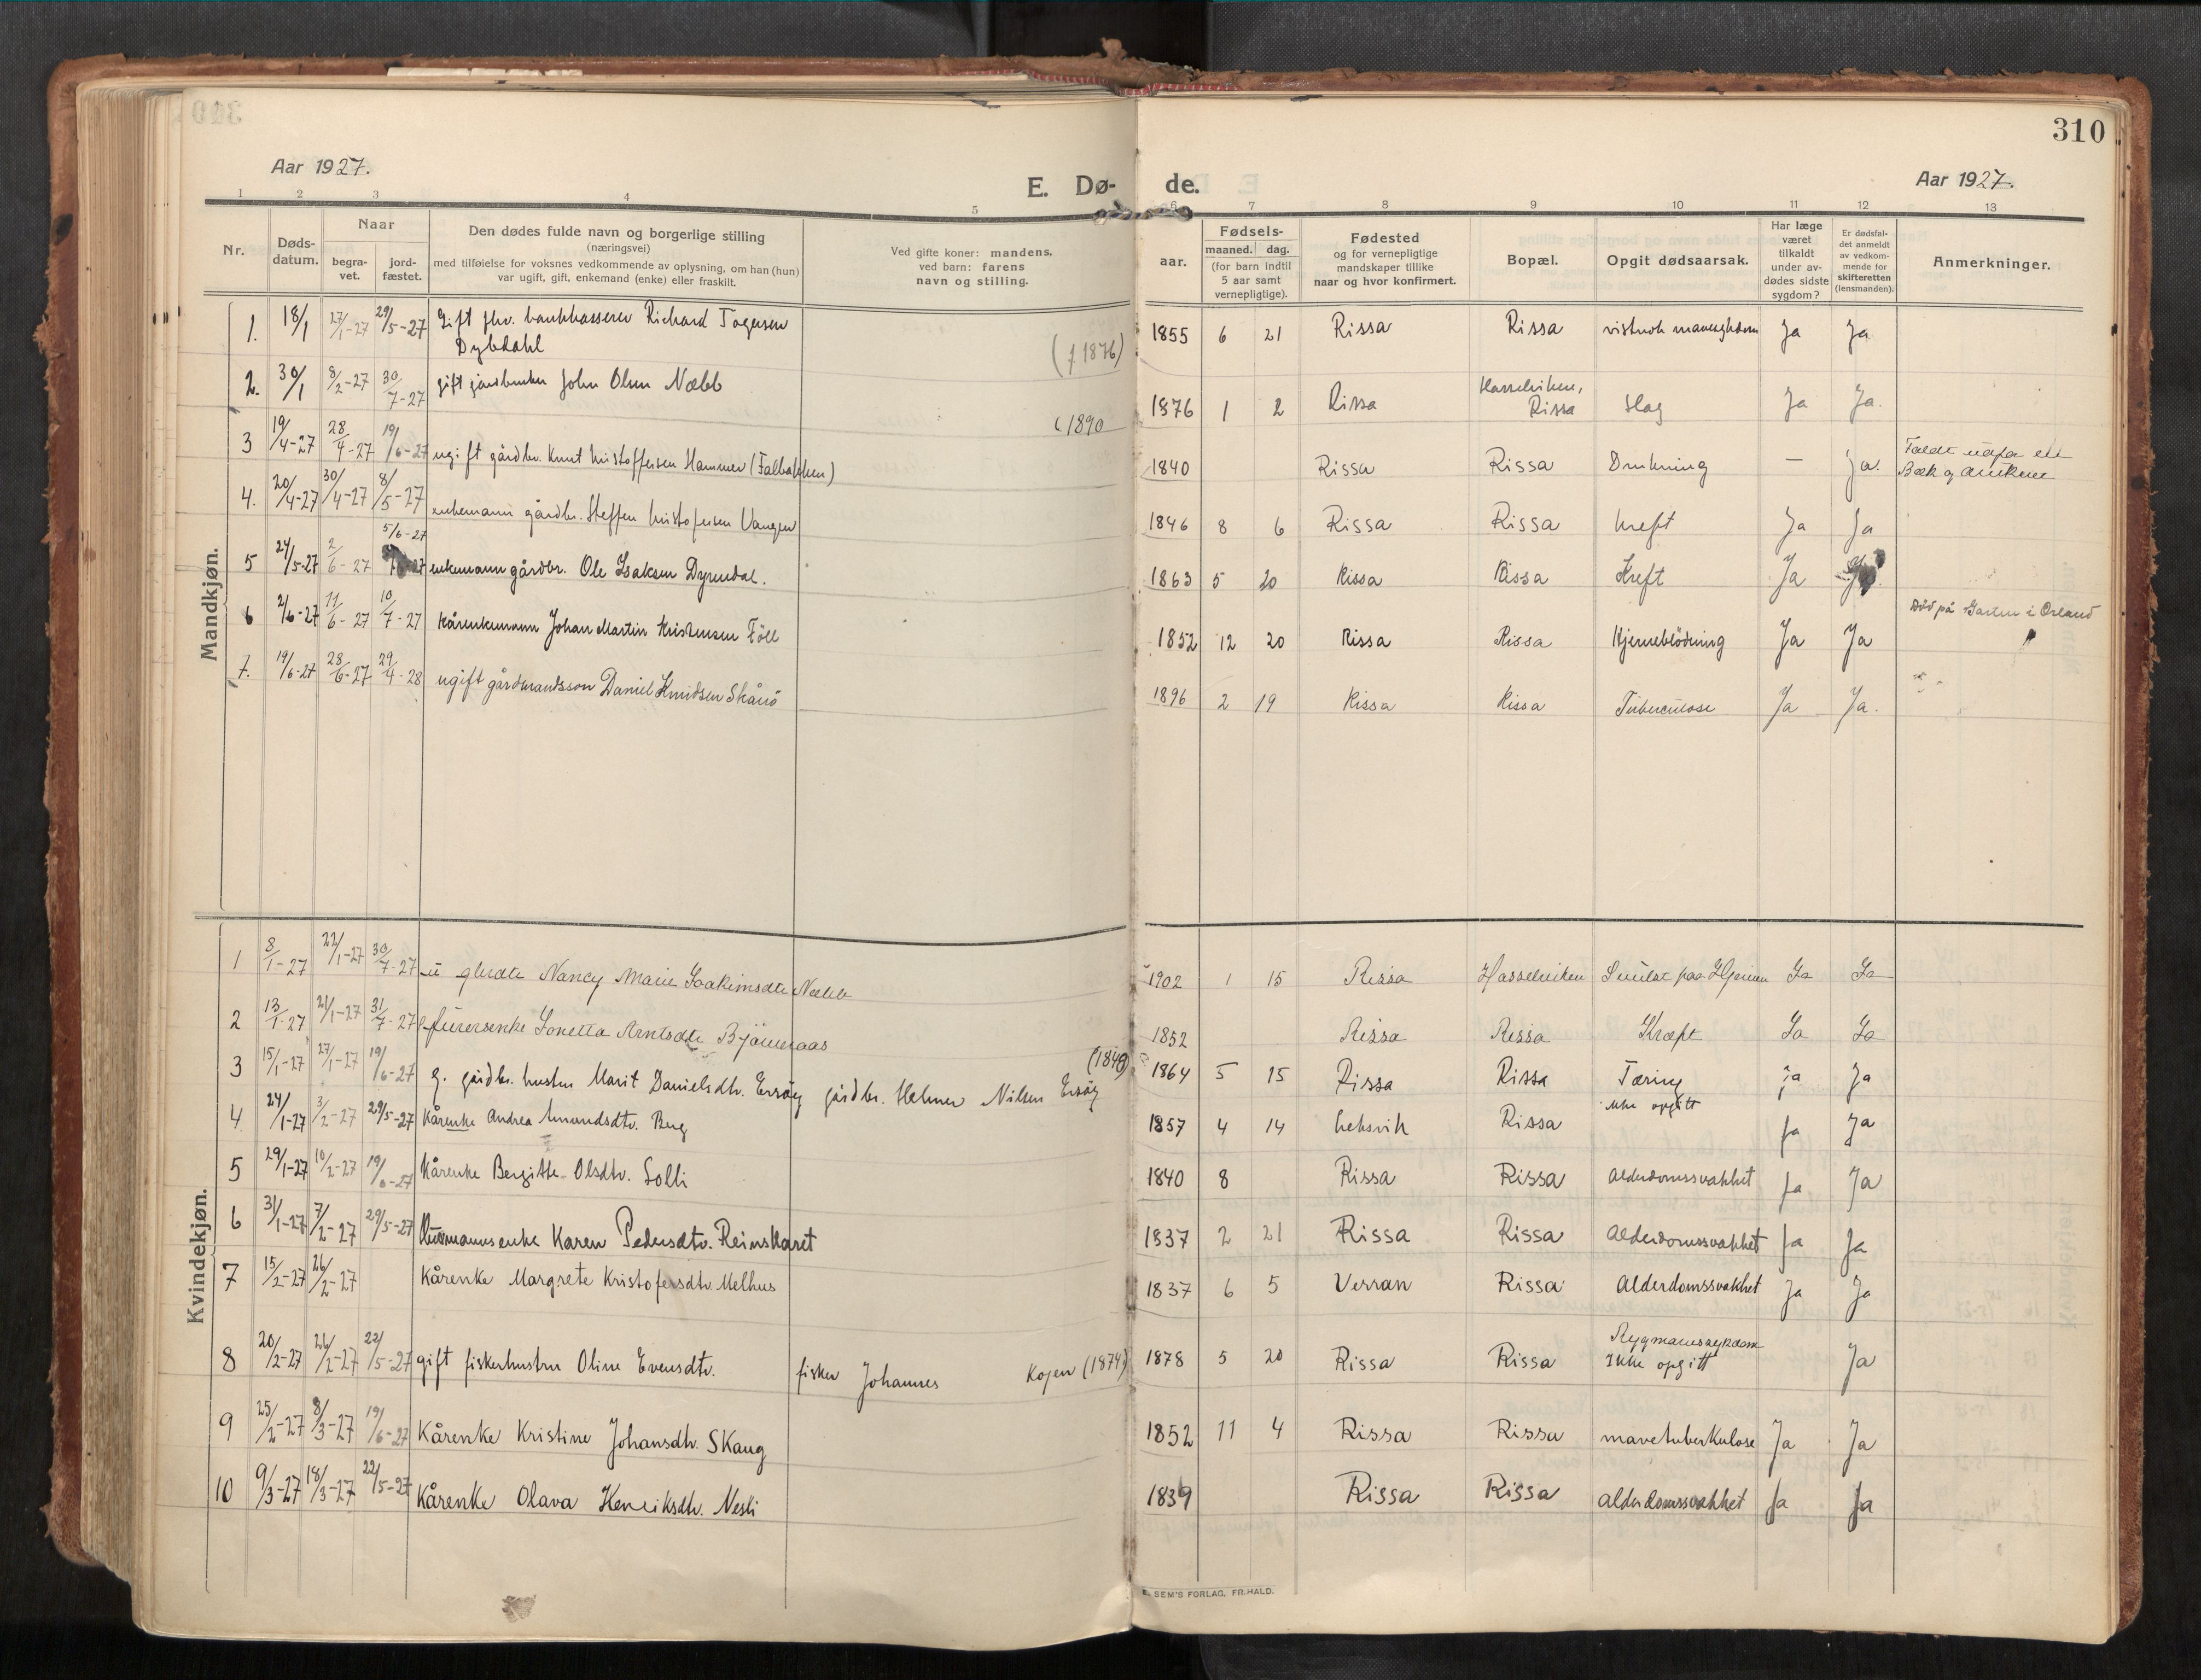 310
Aar 1927.
E. Dø- de.
Aar 1927.
1 2 3 4 5 6 7 8 9 10 11 12 13
Nr.
Døds-
datum.
Naar
begra-
vet.
jord-
fæstet.
Den dødes fulde navn og borgerlige stilling
(næringsvei)
med tilføielse for voksnes vedkommende av oplysning, om han (hun)
var ugift, gift, enkemand (enke) eller fraskilt.
Ved gifte koner: mandens,
ved barn: farens
navn og stilling.
aar.
Fødsels-
maaned. dag.
(for barn indtil
5 aar samt
vernepligtige).
Fødested
og for vernepligtige
mandskaper tillike
naar og hvor konfirmert.
Bopæl.
Opgit dødsaarsak.
Har læge
været
tilkaldt
under av-
dødes sidste
sygdom?
Er dødsfal-
det anmeldt
av vedkom-
mende for
skifteretten
(lensmanden).
Anmerkninger.
Mandkjøn.
1. 18/1 27/1-27 29/5-27 Gift fhv. bankkasserer Richard Togersen 1855 6 21 Rissa Rissa Ja Ja
Dybdahl
(f 1876)
2. 30/1 8/2-27 30/7-27 gift gårdbruker John Olsen Næbb 1876 1 2 Rissa Hasselviken, Rissa Slag Ja Ja.
1890
3 19/4-27 28/4-27 19/6-27 ugift gårdbr. Knut Kristoffersen Hammer (Falbakken) 1840 Rissa Rissa Drukning — Ja.
Bæk og
4. 20/4-27 30/4-27 8/5-27 enkemann gårdbr. Steffen Kristofersen Vangen 1846 8 6 Rissa Rissa kreft Ja Ja
5/6-27
5 24/5-27 2/6-27 enkemann gårdbr. Ole Isaksen Dyrendal. 1863 5 20 Rissa Rissa Kreft Ja
6 2/6-27 11/6-27 10/7-27 Kårenkemann Johan Martin Kristensen Föll 1852 12 20 Rissa Rissa Hjerneblödning Ja Ja Död på Garten i Ørland
7. 19/6-27 28/6-27 29/4-28 ugift gårdmandsson Daniel Knudsen Skånö 1896 2 19 Rissa Rissa Tuberculose Ja Ja.
Kvindekjøn.
1 8/1-27 22/1-27 30/7-27 Nancy Marie Joakimsdtr Næbb 1902 1 15 Rissa Hasselviken Ja Ja
2 13/1-27 21/1-27 31/7-27 Jonetta Arntsdtr Bjørneraas 1852 Rissa Rissa Kræft Ja Ja
(1848)
3 15/1-27 27/1-27 19/6-27 g. gårdbr. hustru Marit Danielsdtr. Ersöy gårdbr. Helmer Nilsen Ersöy 1864 5 15 Rissa Rissa Tæring Ja Ja
4 24/1-27 3/2-27 29/5-27 Kårenke Andrea Amundsdtr. Berg 1857 4 14 Leksvik Rissa ikke opgitt Ja Ja
5 29/1-27 10/2-27 19/6-27 Kårenke Bergitte Olsdtr. Solli 1840 8 Rissa Rissa Alderdomssvakhet Ja Ja
6 31/1-27 7/2-27 29/5-27 Karen Pedersdtr. Reinskaret 1837 2 21 Rissa Rissa Alderdomssvakhet Ja Ja
7 15/2-27 26/2-27 Kårenke Margrete Kristofersdtr. Melhus 1837 6 5 Verran Rissa Alderdomssvakhet Ja Ja
Rygmarvssykdom
8 20/2-27 26/2-27 22/5-27 gift fiskerhustru Oline Evensdtr. fisker Johannes Kojen (1874) 1878 5 20 Rissa Rissa Ikke opgitt Ja
9 25/2-27 8/3-27 19/6-27 Kårenke Kristine Johansdtr. Skaug 1852 11 4 Rissa Rissa mavetuberkulose Ja Ja
10 9/3-27 18/3-27 22/5-27 Kårenke Olava Henriksdtr. Nesli 1839 Rissa Rissa Alderdomssvakhet Ja Ja
SEM'S FORLAG, FR.HALD.